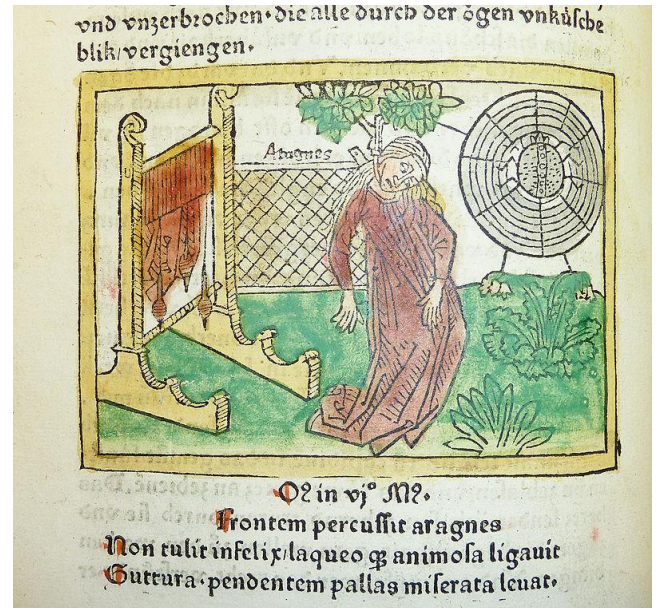 vnd vnzerbrochen. die alle durch der ögen vnküsche
blik/vergiengen.
Aragnes
Oꝛ in vj° Mꝛ.
Frontem percussit aragnes
Non tulit infelix/laqueo ꝙ animosa ligauit
Guttura. pendentem pallas miserata leuat.